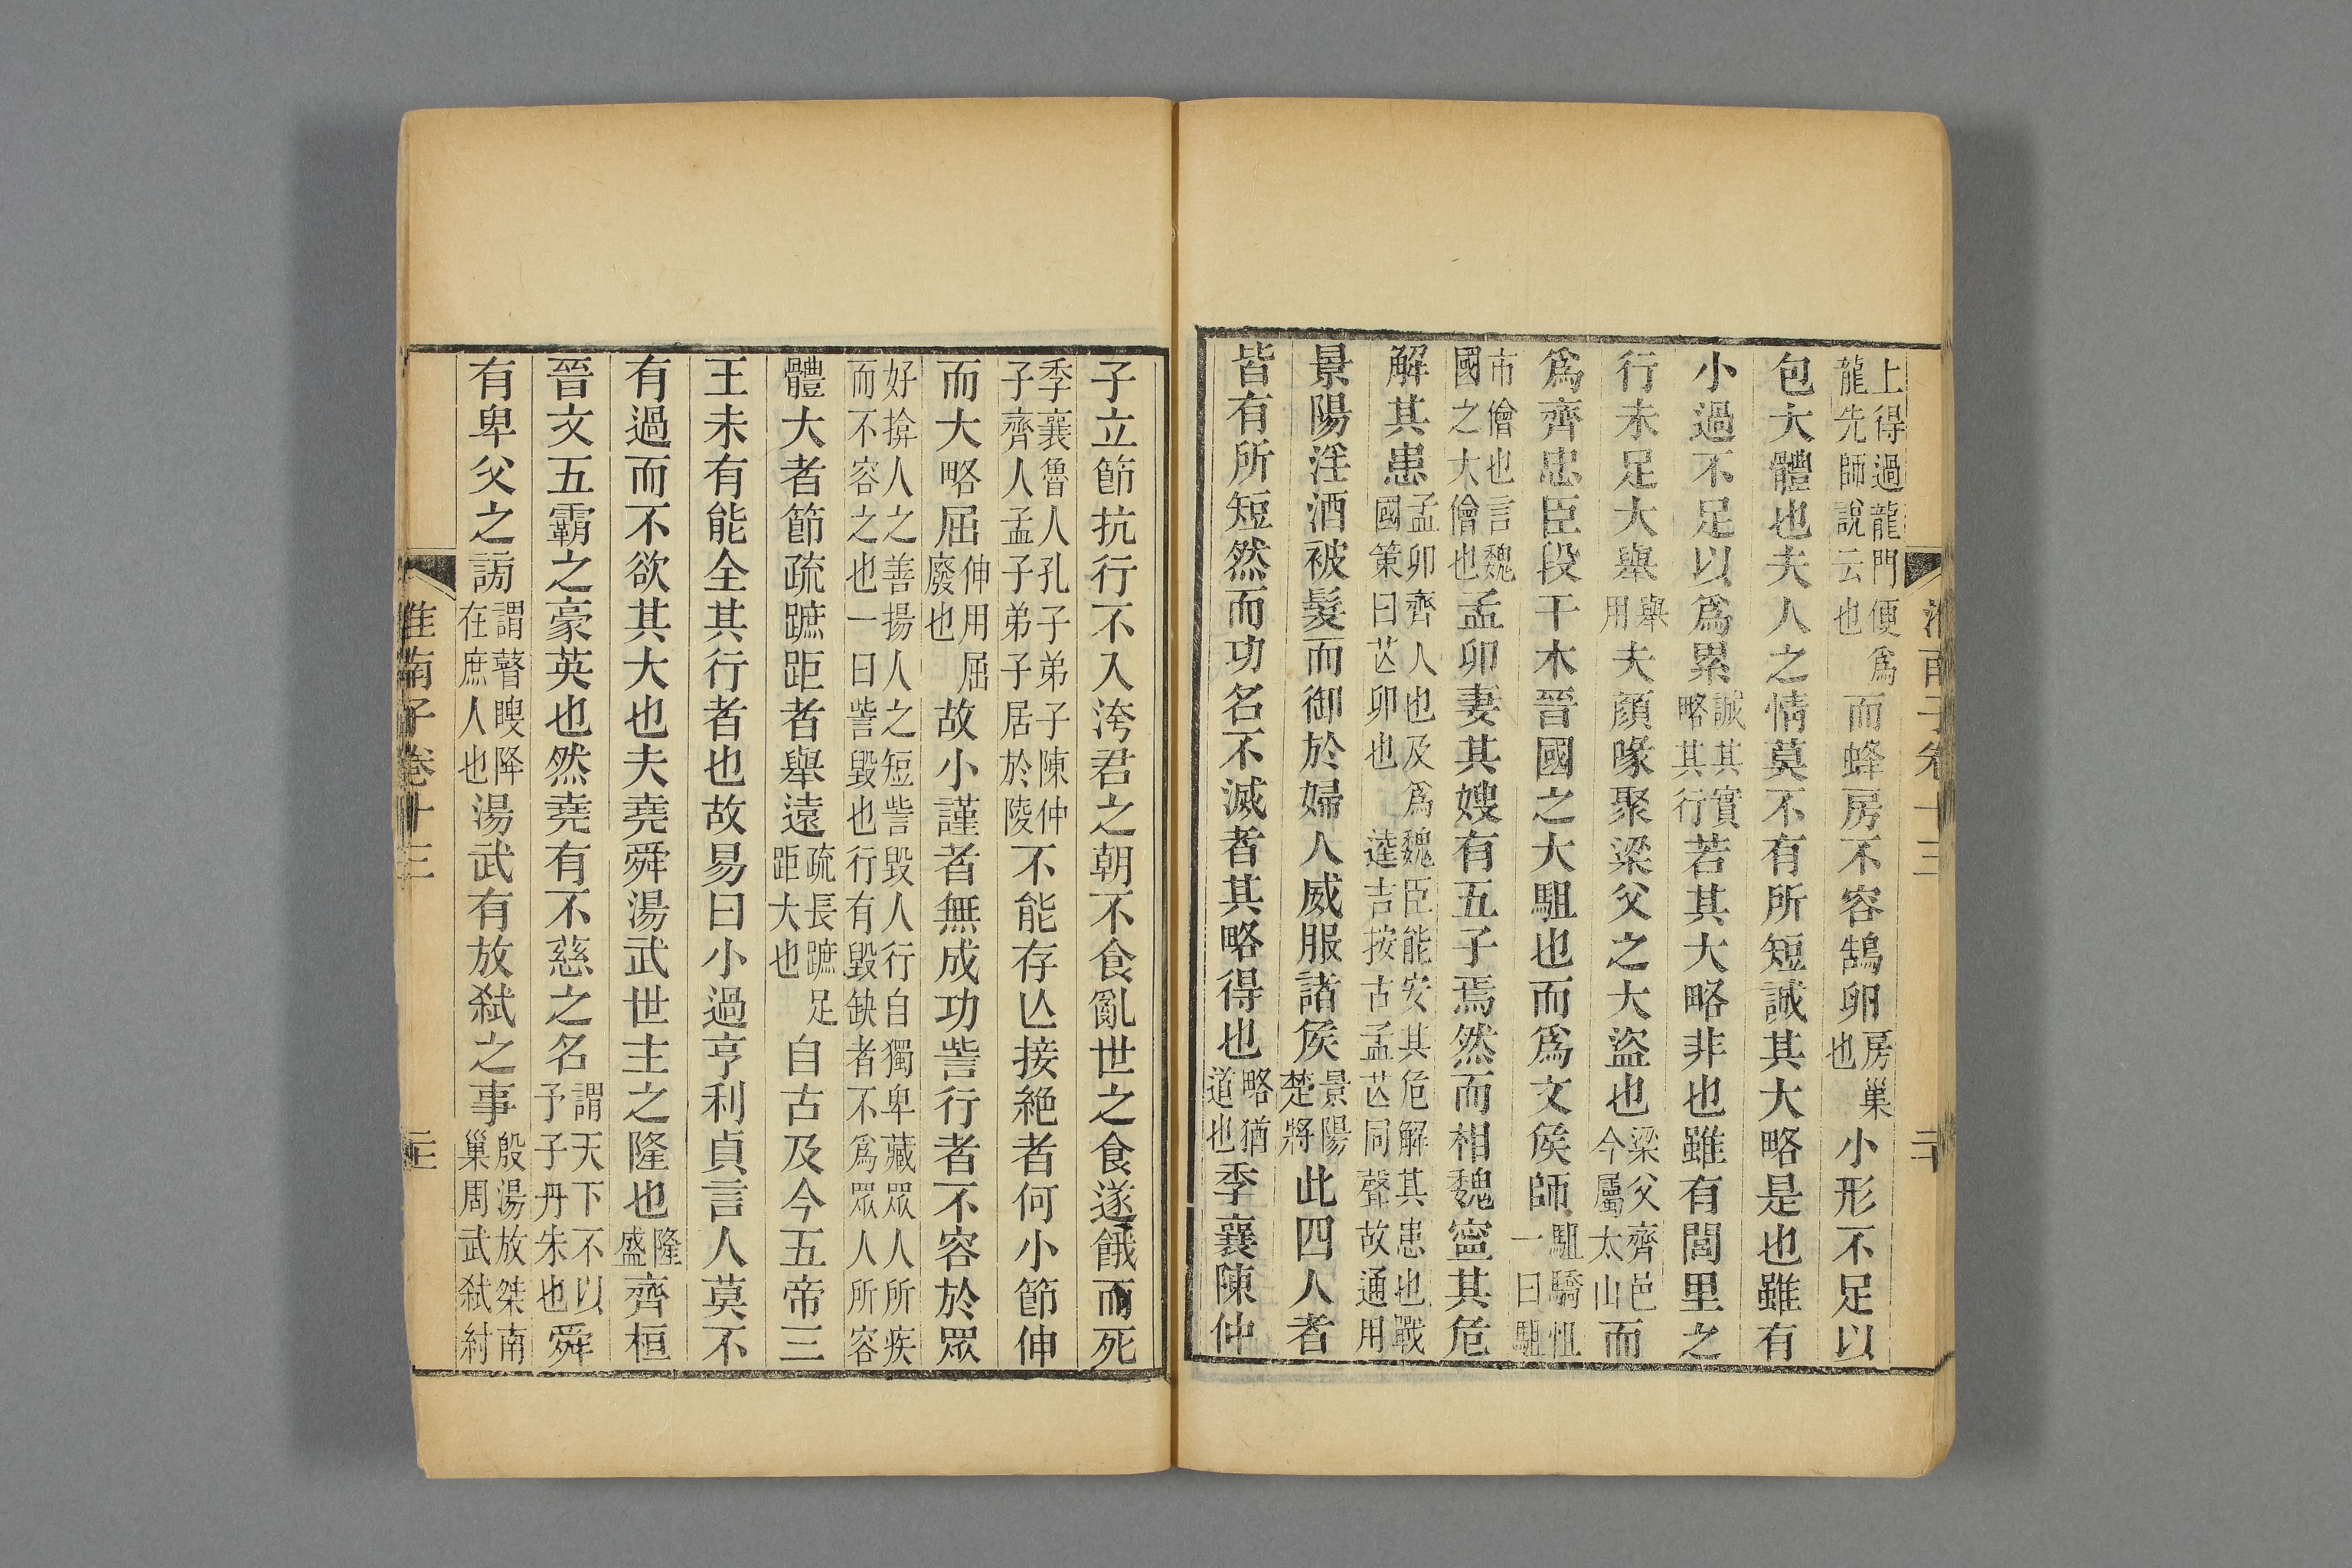 淮南子卷十三 二十
上得過龍門便爲龍先師說云也而蜂房不容鵠卵房巢也小形不足以
包大體也夫人之情莫不有所短誠其大略是也雖有
小過不足以爲累誠其實略其行若其大略非也雖有閭里之
行未足大舉舉用夫顏喙聚梁父之大盜也梁父齊邑今屬太山而
爲齊忠臣段干木晉國之大駔也而爲文侯師駔驕怚一曰駔
市儈也言魏國之大儈也孟卯妻其嫂有五子焉然而相魏寍其危
解其患孟卯齊人也及爲魏臣能安其危解其患也戰國策曰芒卯也逵吉按古孟芒同聲故通用
景陽淫酒被髮而御於婦人威服諸侯景陽楚將此四人者
皆有所短然而功名不滅者其略得也略猶道也季襄陳仲
子立節抗行不入洿君之朝不食亂世之食遂餓而死
季襄魯人孔子弟子陳仲子齊人孟子弟子居於陵不能存亾接絶者何小節伸
而大略屈伸用屈廢也故小謹者無成功訾行者不容於眾
好揜人之善揚人之短訾毀人行自獨卑藏眾人所疾而不容之也一曰訾毀也行有毀缺者不爲眾人所容
體大者節疏蹠距者舉遠疏長蹠足距大也自古及今五帝三
王未有能全其行者也故易曰小過亨利貞言人莫不
有過而不欲其大也夫堯舜湯武世主之隆也隆盛齊桓
晉文五霸之豪英也然堯有不慈之名謂天下不以予子丹朱也舜
有卑父之謗謂瞽瞍降在庶人也湯武有放弒之事殷湯放桀南巢周武弒紂
淮南子卷十三 二十一